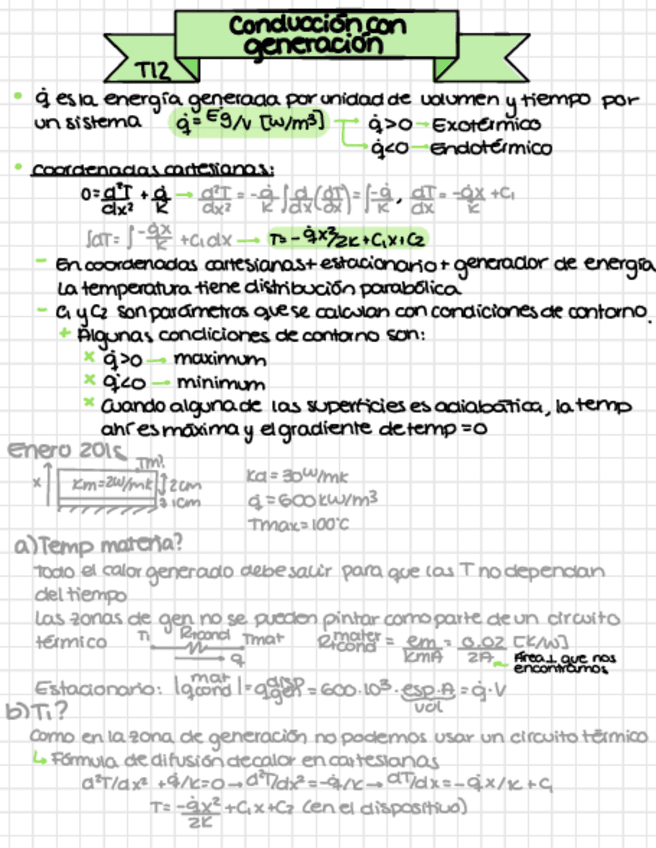 Conducción con
generación
T12
• q̇ es la energía generada por unidad de volumen y tiempo por
un sistema q̇=Eg/V [W/m³] → q̇>0 → Exotérmico
→ q̇<0 → Endotérmico
• coordenadas cartesianas:
0=d²T/dx² + q̇/K → d²T/dx² = -q̇/K ∫d/dx(dT/dx)=∫-q̇/K, dT/dx = -q̇x/K + C₁
∫dT=∫-q̇x/K + C₁dx → T=-q̇x²/2K+C₁x+C₂
- En coordenadas cartesianas+estacionario+generador de energía
La temperatura tiene distribución parabólica
- C₁ y C₂ son parámetros que se calculan con condiciones de contorno.
+ Algunas condiciones de contorno son:
x q̇>0 → maximum
x q̇<0 → minimum
x Cuando alguna de las superficies es adiabática, la temp
ahí es máxima y el gradiente de temp =0
Enero 2015
Tm?
x Km=2W/mk 2cm
1cm
Kd=30W/mk
q̇=600kW/m³
Tmax=100°C
a) Temp materia?
Todo el calor generado debe salir para que las T no dependan
del tiempo
Las zonas de gen no se pueden pintar como parte de un circuito
térmico T₁ Rcond Tmat Rcond mater = em/KmA = 0.02/2A [K/W]
q
Área ⊥ que nos
encontramos
Estacionario: |qcond mat|=qgen disp=600·10³·esp·A=q̇·V
vol
b) T₁?
Como en la zona de generación no podemos usar un circuito térmico
↳ Fórmula de difusión de calor en cartesianas
d²T/dx² + q̇/K=0→d²T/dx²=-q̇/K→dT/dx=-q̇x/K+C₁
T=-q̇x²/2K+C₁x+C₂ (en el dispositivo)